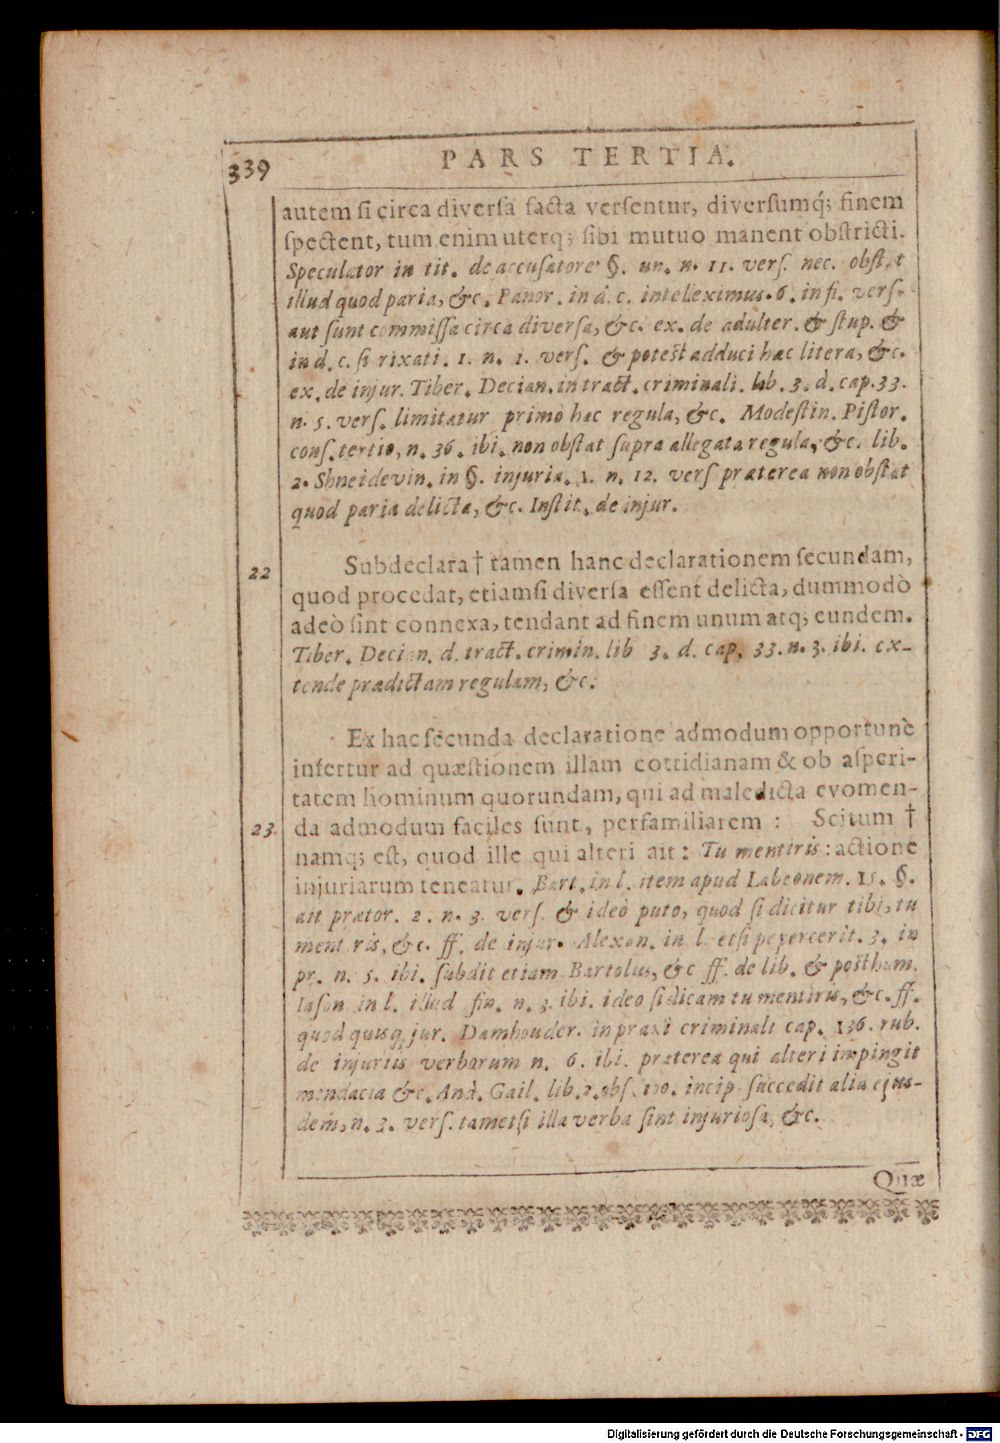 339 PARS TERTIA.
autem ſi circa diverſa facta verſentur, diverſumq́; finem
ſpectent, tum enim uterq; ſibi mutuo manent obſtricti.
Speculator in tit. de accuſatore §. un. n. 11. verſ. nec. obſtat
illud quod paria, &c. Panor. in d. c. intelleximus. 6. in fi. verſ.
aut ſunt commiſſa circa diverſa, &c. ex. de adulter. & ſtup. &
in d. c. ſi rixati. 1. n. 1. verſ. & poteſt adduci hæc litera, &c.
ex. de injur. Tiber. Decian. in tract. criminali. lib. 3. d. cap. 33.
n. 5. verſ. limitatur primò hæc regula, &c. Modeſtin. Piſtor.
conſ. tertio, n. 36. ibi. non obſtat ſupra allegata regula, &c. lib.
2. Shneidevvin. in §. injuria. 1. n. 12. verſ præterea non obſtat
quod paria delicta, &c. Inſtit. de injur.
22 Subdeclara † tamen hanc declarationem ſecundam,
quod procedat, etiamſi diverſa eſſent delicta, dummodò
adeò ſint connexa, tendant ad finem unum atq; eundem.
Tiber. Decian. d. tract. crimin. lib 3. d. cap. 33. n. 3. ibi. ex-
tende prædictam regulam, &c.
Ex hac ſecunda declaratione admodum opportunè
infertur ad quæſtionem illam cottidianam & ob aſperi-
tatem hominum quorundam, qui ad maledicta evomen-
23. da admodum faciles ſunt, perfamiliarem : Scitum †
namq; eſt, quod ille qui alteri ait: Tu mentiris: actione
injuriarum teneatur. Bart. in l. item apud Labeonem. 15. §.
ait prætor. 2. n. 3. verſ. & ideò puto, quod ſi dicitur tibi, tu
mentiris, &c. ff. de injur. Alexan. in l. etſi pepercerit. 3. in
pr. n. 5. ibi. ſubdit etiam Bartolus, &c ff. de lib. & poſthum.
Iaſon in l. illud fin. n. 3. ibi. ideo ſi dicam tu mentiris, &c. ff.
quod quisq; jur. Damhouder. in praxi criminali cap. 136. rub.
de injuriis verborum n. 6. ibi. præterea qui alteri impingit
mendacia &c. And. Gail. lib. 2. obſ. 100. incip. ſuccedit alia ejus-
dem, n. 3. verſ. tametſi illa verba ſint injurioſa, &c.
Quæ
Digitalisierung gefördert durch die Deutsche Forschungsgemeinschaft - DFG